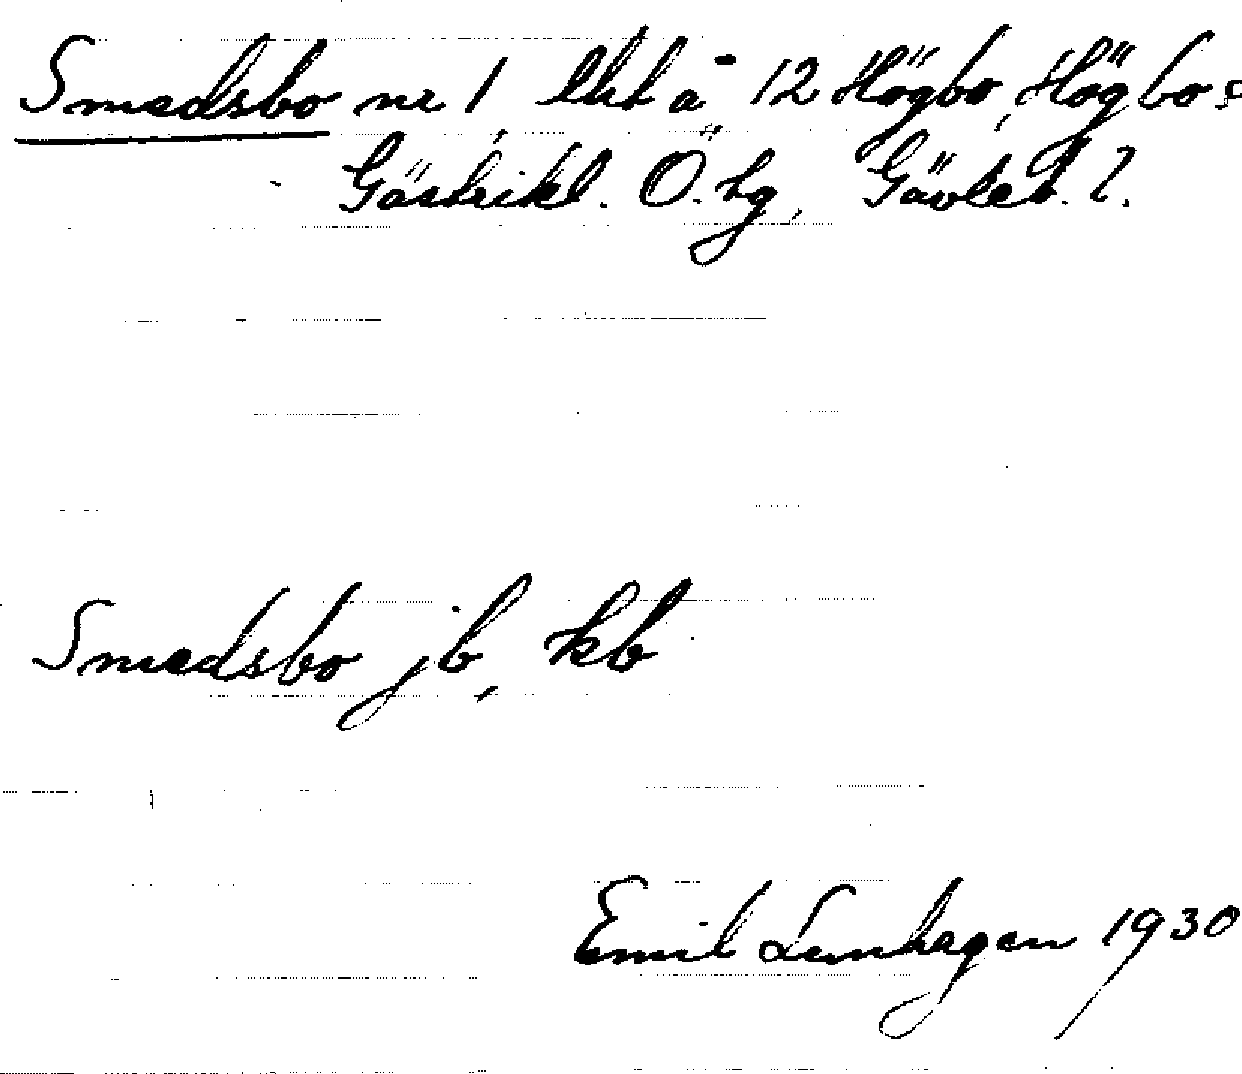 Smedsbo nr 1, Ekt å 12 Högbo, Högbo s
Gästrikl. Ö. tg, Gävleb. l.
Smedsbo jb, kb
Emil Lunhagen 1930